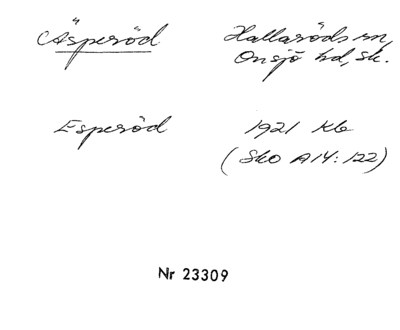 (Äsperöd Hallaröds sn,
Onsjö hd, Sk.
Esperöd 1921 Kb
(Sko A14:122)
Nr 23309